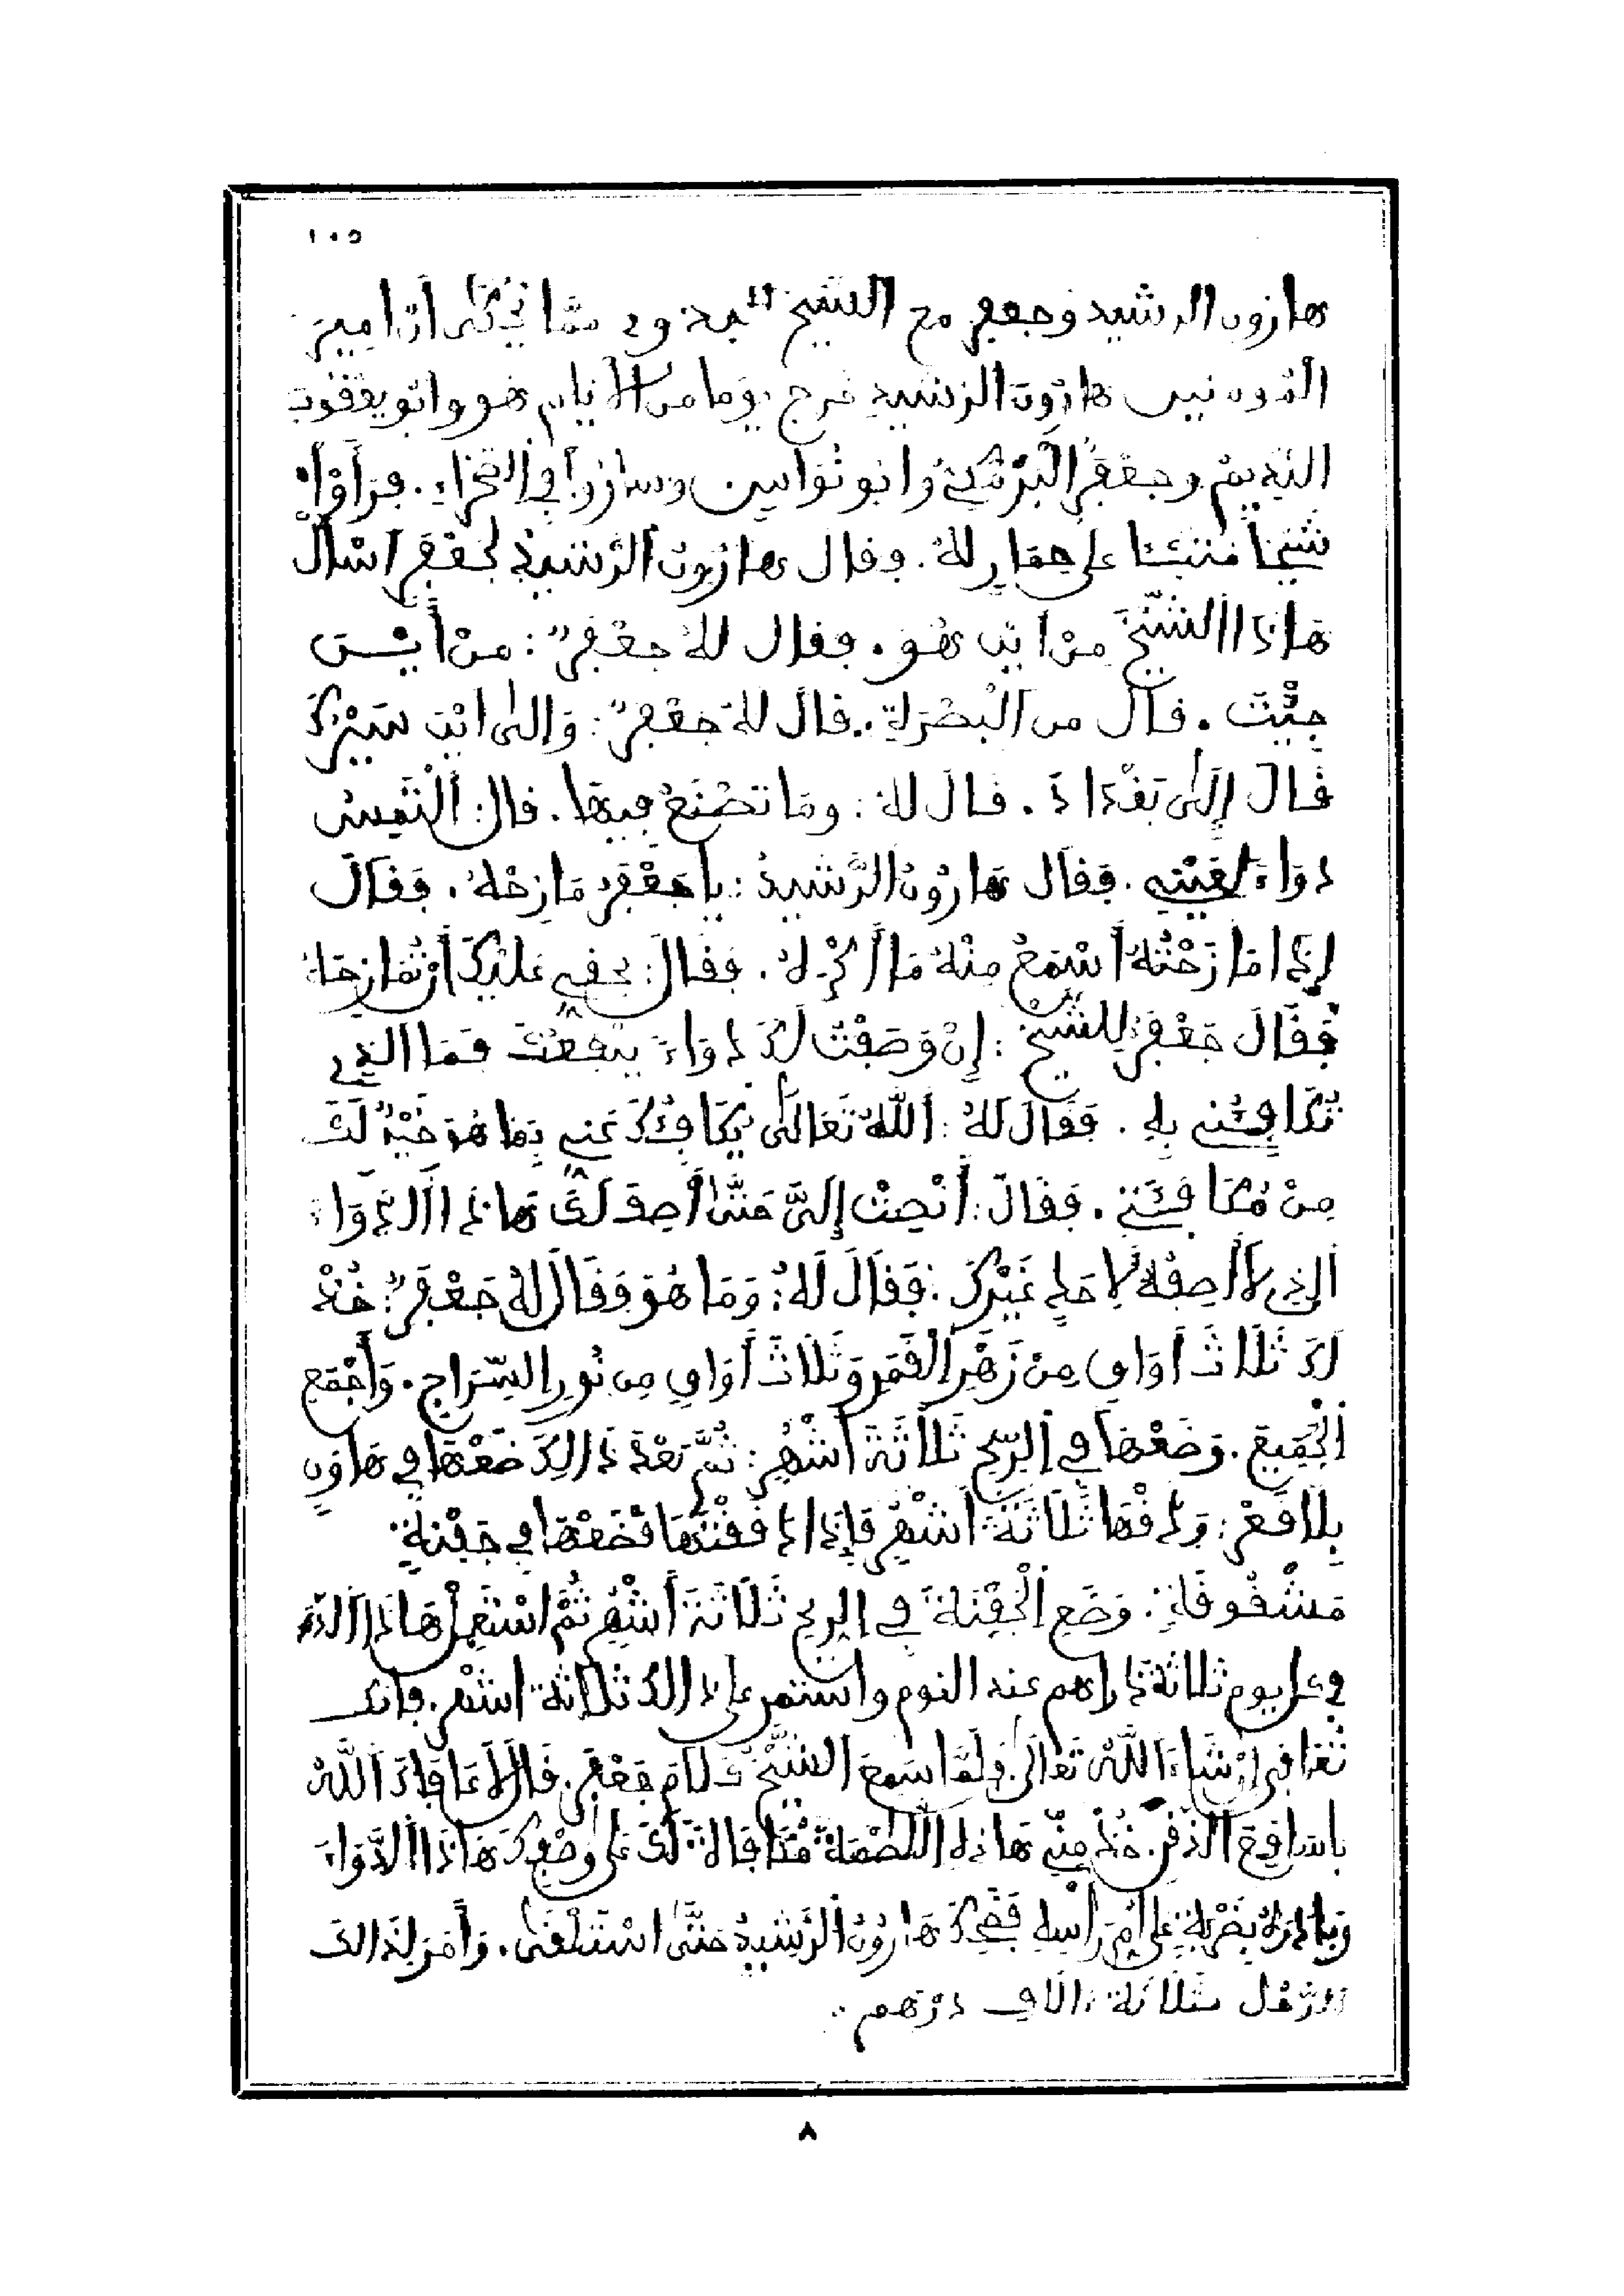 ١٠٥
هارون الرشيد وجعفر مع الشيخ البدوي مما يُحْكَى أنّ امير
المُومنين هارُون الرشيد خرج يوما من الأيام هُوَ وأبُو يَعْقُوب
النّدِيمُ وجَعْفَرُ الْبَرْمَكِيُّ وابُو نُوَاسٍ وسارُوا فِي الصَّحْرَاءِ. فَرَأَوْا
شَيْخاً مُتَّكِئا على حِمَارٍ لَهُ. فقال هارُونُ الرَّشِيدُ لِجَعْفَرٍ اسْأَلْ
هَاذَا الشَّيْخَ مِنْ أيْن هُوَ. فقال لَهُ جَعْفَرٌ: مِنْ أَيْنَ
جِئْتَ. قال من الْبَصْرَةِ. قال لَهُ جَعْفَرٌ: وَإلَى ايْنَ سَيْرُكَ
قَالَ إِلَى بَغْدَادَ. قَالَ لَهُ: ومَا تَصْنَعُ فِيهَا. قال: أَلْتَمِسُ
دوَاءً لِعَيْنِي. فَقَالَ هَارُونُ الرَّشِيدُ: يا جَعْفَرُ مَازِحْهُ. فَقَالَ
إِذَا مَازَحْتُهُ أَسْمَعُ مِنْهُ مَا أَكْرَهُ. فَقَالَ: بِحَقِّي عَلَيْكَ أَنْ تُمَازِحَهُ
فَقَالَ جَعْفَرٌ لِلشَّيْخِ: إِنْ وَصَفْتُ لَكَ دَوَاءً يَنْفَعُكَ فَمَا الَّذِي
تُكَافِئُنِي بِهِ. فَقَالَ لَهُ: أَللَّهُ تَعَالَى يُكَافِئُكَ عَنِّي بِمَا هُوَ خَيْرٌ لَكَ
مِنْ مُكَافَأَتِي. فَقَالَ: أَنْصِتْ إِلَيَّ حَتَّى أَصِفَ لَكَ هَاذَا الدَّوَاءَ
الَّذِي لَا أَصِفُهُ لِأَحَدٍ غَيْرِكَ. فَقَالَ لَهُ: وَمَا هُوَ فَقَالَ لَهُ جَعْفَرٌ: خُذْ
لَكَ ثَلَاثَ أَوَاقٍ مِنْ زَهْرِ الْقَمَرِ وَثَلَاثَ أَوَاقٍ مِن نُورِ السِّرَاجِ. وَأَجْمَعِ
الْجَمِيعَ. وَضَعْهَا فِي الرِّيحِ ثَلَاثَةَ أَشْهُرٍ: ثُمَّ بَعْدَ ذَالِكَ ضَعْهَا فِي هَاوَنٍ
بِلَا قَعْرٍ: وَدُقَّهَا ثَلَاثَةَ أَشْهُرٍ فَإِذَا دَقَقْتَهَا فَضَعْهَا فِي جَفْنَةٍ
مَشْقُوقَةٍ. وَضَعِ الْجَفْنَةَ فِي الرِّيحِ ثَلَاثَةَ أَشْهُرٍ ثُمَّ اسْتَعْمِلْ هَاذَا الدَّوَاءَ
في كل يوم ثلاثة دراهم عند النوم واستمر على ذالك ثلاثة أشهر. فإنك
تُعَافَى إِنْ شَاءَ اللَّهُ تَعَالَى. وَلَمَّا سَمِعَ الشَّيْخُ كَلَامَ جَعْفَرٍ. قَالَ لَا عَافَاكَ اللَّهُ
يا سَاقِعَ الذَّقْنِ. خُذْ مِنِّي هَاذِهِ اللَّطْمَةَ مُكَافَأَةً لَكَ عَلَى وَصْفِكَ هَاذَا الدَّوَاءَ
وَبَادَرَهُ بِضَرْبَةٍ عَلَى أُمِّ رَأْسِهِ فَضَحِكَ هَارُونُ الرَّشِيدُ حَتَّى اسْتَلْقَى. وَأَمَرَ لِذَالِكَ
الرَّجُلِ بِثَلَاثَةِ آلَافِ دِرْهَمٍ.
٨